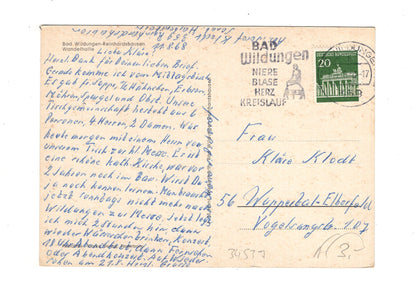 Bad Wildungen-Reinhardshausen
Wandelhalle
Liebe Kläre! 11.8.68
Herzl. Dank für Deinen lieben Brief.
Gerade komme ich vom Mittagessen.
Es gab Suppe, ½ Hähnchen, Erbsen,
Möhren, Spargel und Obst. Unsere
Tischgemeinschaft besteht aus 6
Personen, 4 Herren, 2 Damen. War
heute morgen mit einem Herrn von
unserem Tisch zur hl. Messe. Es ist
eine schöne kath. Kirche, war vor
2 Jahren noch im Bau. Wirst Du
ja noch kennen lernen. Man braucht
jetzt sonntags nicht mehr nach
Wildungen zur Messe. Jetzt lege
ich mich 2 Stunden hin, dann
wieder Wasser trinken, Konzert,
18 Uhr Abendbrot, dann Fernsehen
oder Abendkonzert. Auf Wieder-
sehen am 21.8. Herzl. Grüße
BAD
Wildungen
NIERE
BLASE
HERZ
KREISLAUF
20
Frau
Kläre Klodt
56 Wuppertal-Elberfeld
Vogelsangstr. 107
34537
3,-